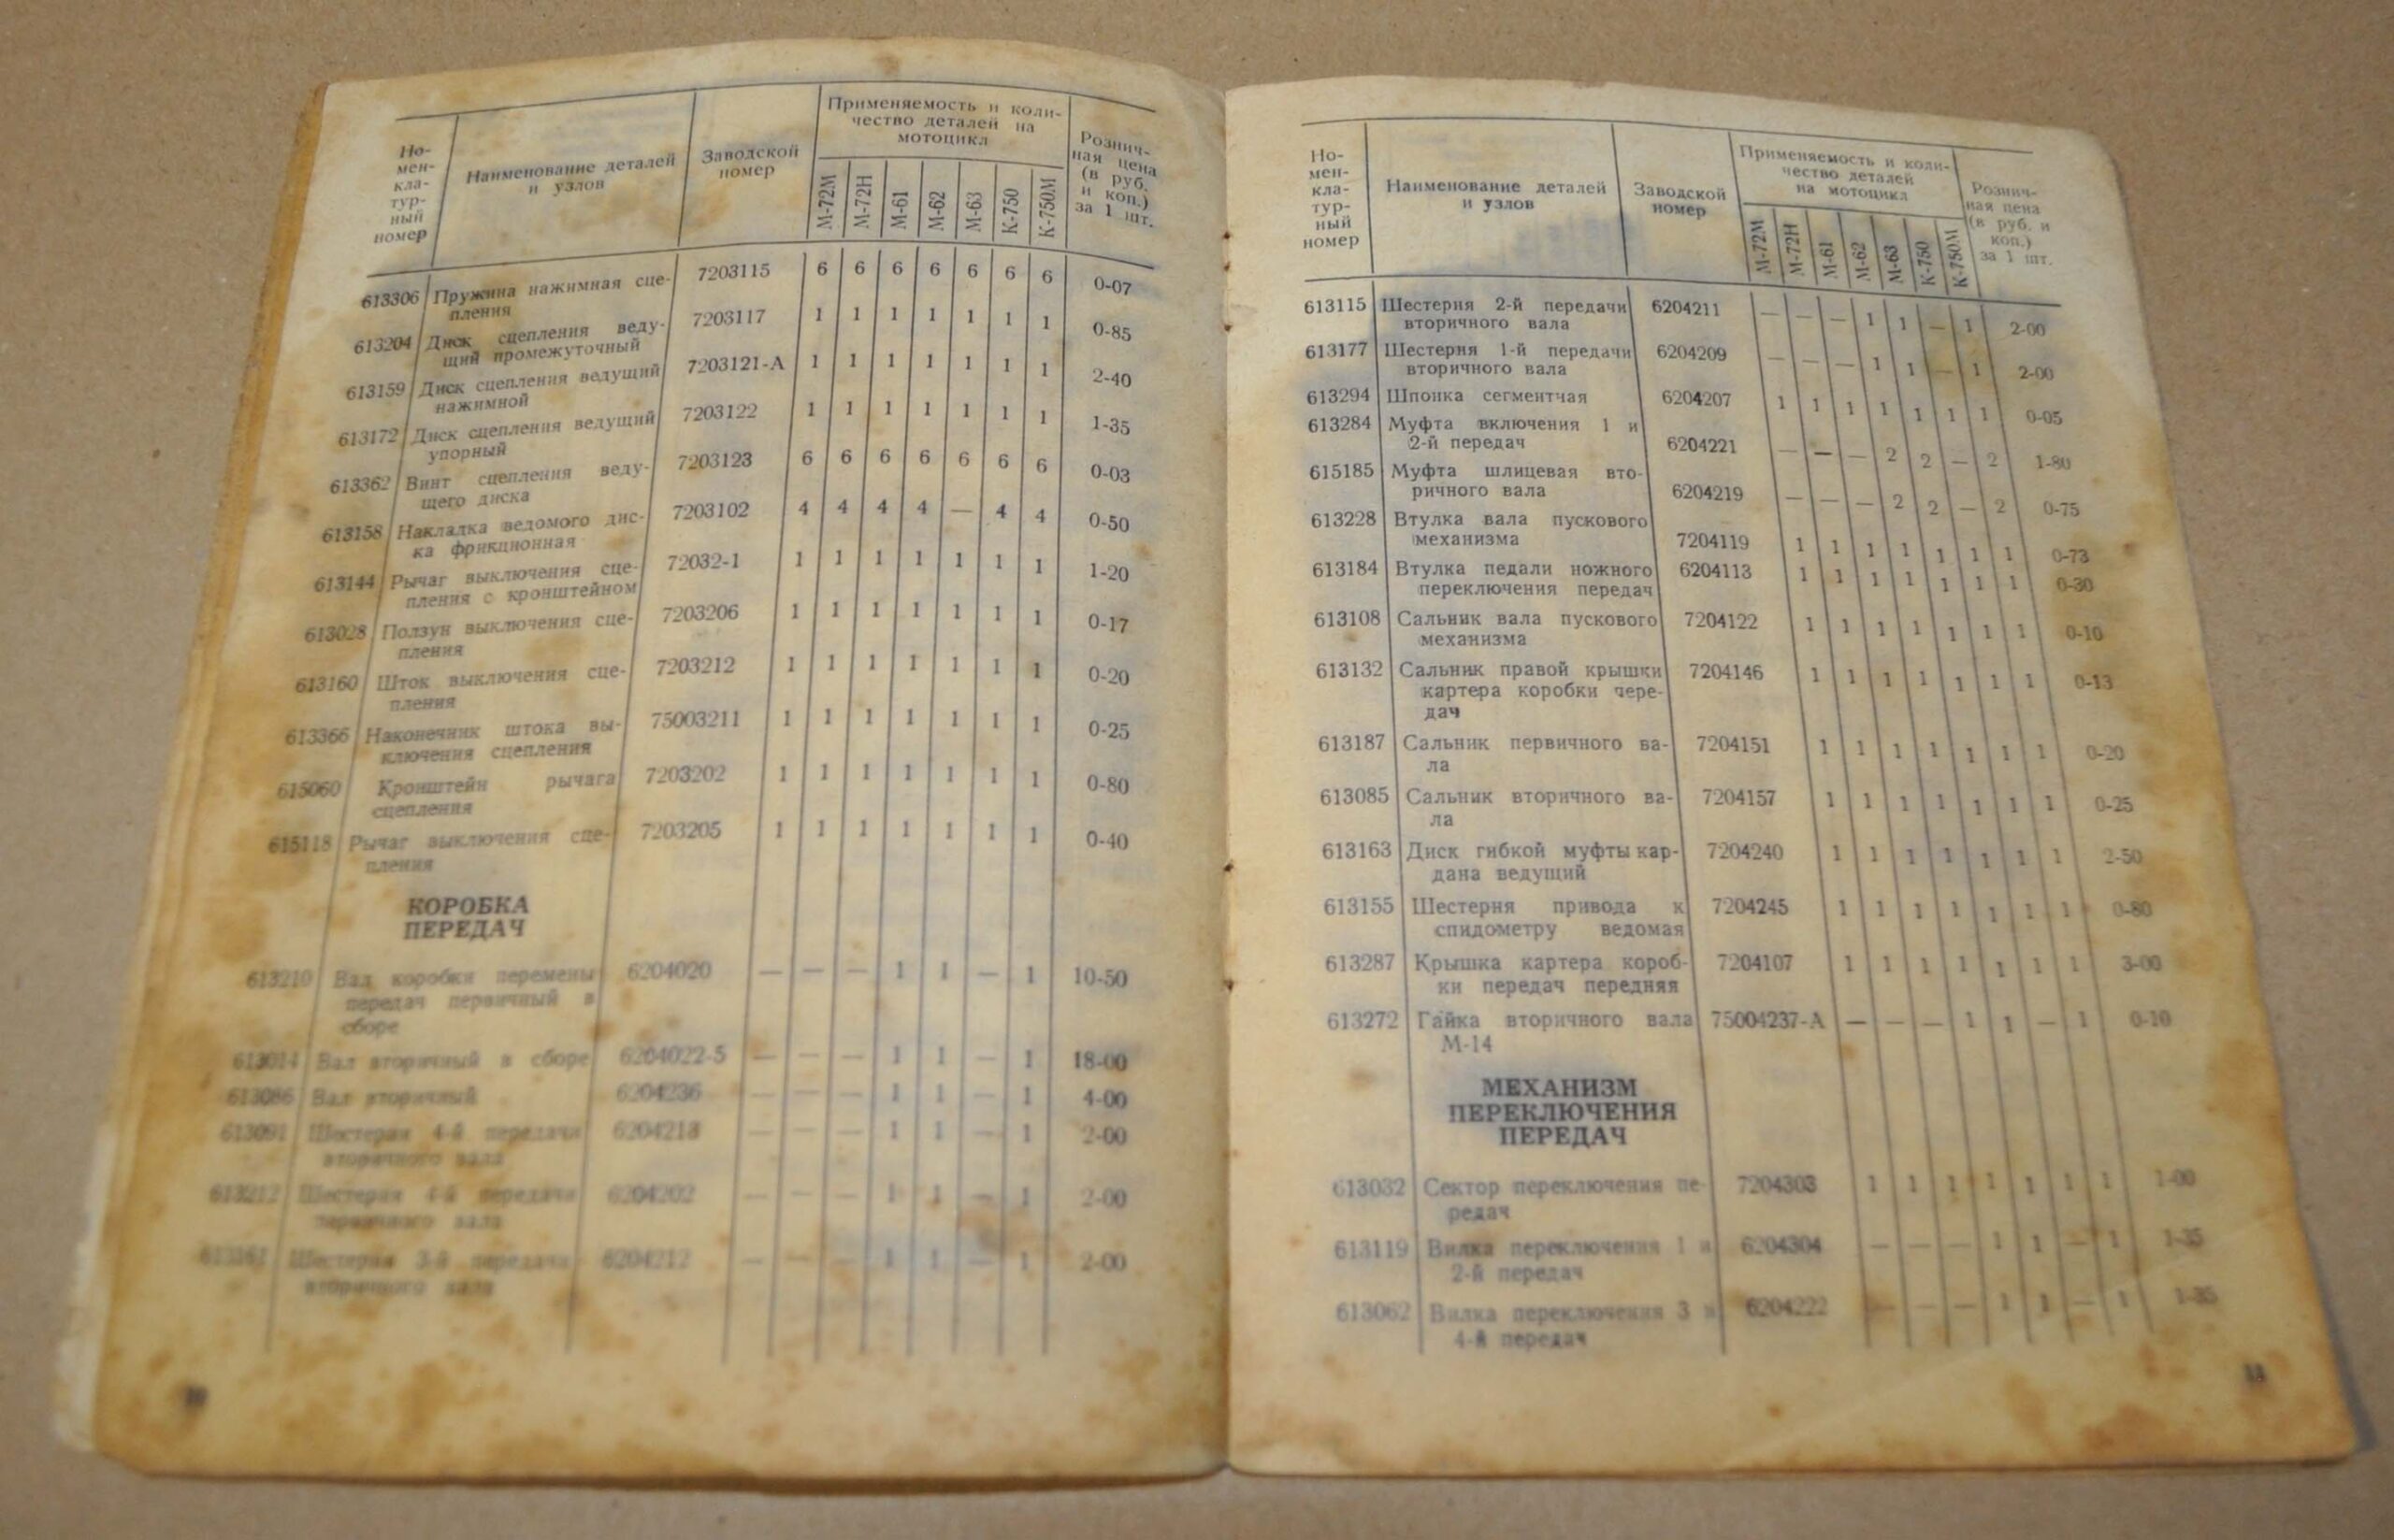 Но-
мен-
кла-
тур-
ный
номер
Наименование деталей
и узлов
Заводской
номер
Применяемость и коли-
чество деталей на
мотоцикл
М-72М М-72Н М-61 М-62 М-63 К-750 К-750М
Рознич-
ная цена
(в руб.
и коп.)
за 1 шт.
613306 Пружина нажимная сце- 7203115 6 6 6 6 6 6 6 0-07
пления
613204 Диск сцепления веду- 7203117 1 1 1 1 1 1 1 0-85
щий промежуточный
613159 Диск сцепления ведущий 7203121-А 1 1 1 1 1 1 1 2-40
нажимной
613172 Диск сцепления ведущий 7203122 1 1 1 1 1 1 1 1-35
упорный
613362 Винт сцепления веду- 7203123 6 6 6 6 6 6 6 0-03
щего диска
613158 Накладка ведомого дис- 7203102 4 4 4 4 — 4 4 0-50
ка фрикционная
613144 Рычаг выключения сце- 72032-1 1 1 1 1 1 1 1 1-20
пления с кронштейном
613028 Ползун выключения сце- 7203206 1 1 1 1 1 1 1 0-17
пления
613160 Шток выключения сце- 7203212 1 1 1 1 1 1 1 0-20
пления
613366 Наконечник штока вы- 75003211 1 1 1 1 1 1 1 0-25
ключения сцепления
615060 Кронштейн рычага 7203202 1 1 1 1 1 1 1 0-80
сцепления
615118 Рычаг выключения сце- 7203205 1 1 1 1 1 1 1 0-40
пления
КОРОБКА
ПЕРЕДАЧ
613210 Вал коробки перемены 6204020 — — — 1 1 — 1 10-50
передач первичный в
сборе
613014 Вал вторичный в сборе 6204022-5 — — — 1 1 — 1 18-00
613086 Вал вторичный 6204236 — — — 1 1 — 1 4-00
613091 Шестерня 4-й передачи 6204218 — — — 1 1 — 1 2-00
вторичного вала
613212 Шестерня 4-й передачи 6204202 — — — 1 1 — 1 2-00
первичного вала
Шестерня 3-й передачи 6204212 — — — 1 1 — 1 2-00
вторичного вала
Но-
мен-
кла-
тур-
ный
номер
Наименование деталей
и узлов
Заводской
номер
Применяемость и коли-
чество деталей
на мотоцикл
М-72М М-72Н М-61 М-62 М-63 К-750 К-750М
Рознич-
ная цена
(в руб. и
коп.)
за 1 шт.
613115 Шестерня 2-й передачи 6204211 — — — 1 1 — 1 2-00
вторичного вала
613177 Шестерня 1-й передачи 6204209 — — — 1 1 — 1 2-00
вторичного вала
613294 Шпонка сегментчая 6204207 1 1 1 1 1 1 1 0-05
613284 Муфта включения 1 и
2-й передач 6204221 — — — 2 2 — 2 1-80
615185 Муфта шлицевая вто-
ричного вала 6204219 — — — 2 2 — 2 0-75
613228 Втулка вала пускового
механизма 7204119 1 1 1 1 1 1 1 0-73
613184 Втулка педали ножного 6204113 1 1 1 1 1 1 1 0-30
переключения передач
613108 Сальник вала пускового 7204122 1 1 1 1 1 1 1 0-10
механизма
613132 Сальник правой крышки 7204146 1 1 1 1 1 1 1 0-13
картера коробки чере-
дач
613187 Сальник первичного ва- 7204151 1 1 1 1 1 1 1 0-20
ла
613085 Сальник вторичного ва- 7204157 1 1 1 1 1 1 1 0-25
ла
613163 Диск гибкой муфты кар- 7204240 1 1 1 1 1 1 1 2-50
дана ведущий
613155 Шестерня привода к 7204245 1 1 1 1 1 1 1 0-80
спидометру ведомая
613287 Крышка картера короб- 7204107 1 1 1 1 1 1 1 3-00
ки передач передняя
613272 Гайка вторичного вала 75004237-А — — — 1 1 — 1 0-10
М-14
МЕХАНИЗМ
ПЕРЕКЛЮЧЕНИЯ
ПЕРЕДАЧ
613032 Сектор переключения пе- 7204303 1 1 1 1 1 1 1 1-00
редач
613119 Вилка переключения 1 и 6204304 — — — 1 1 — 1 1-35
2-й передач
613062 Вилка переключения 3 и 6204222 — — — 1 1 — 1 1-35
4-й передач